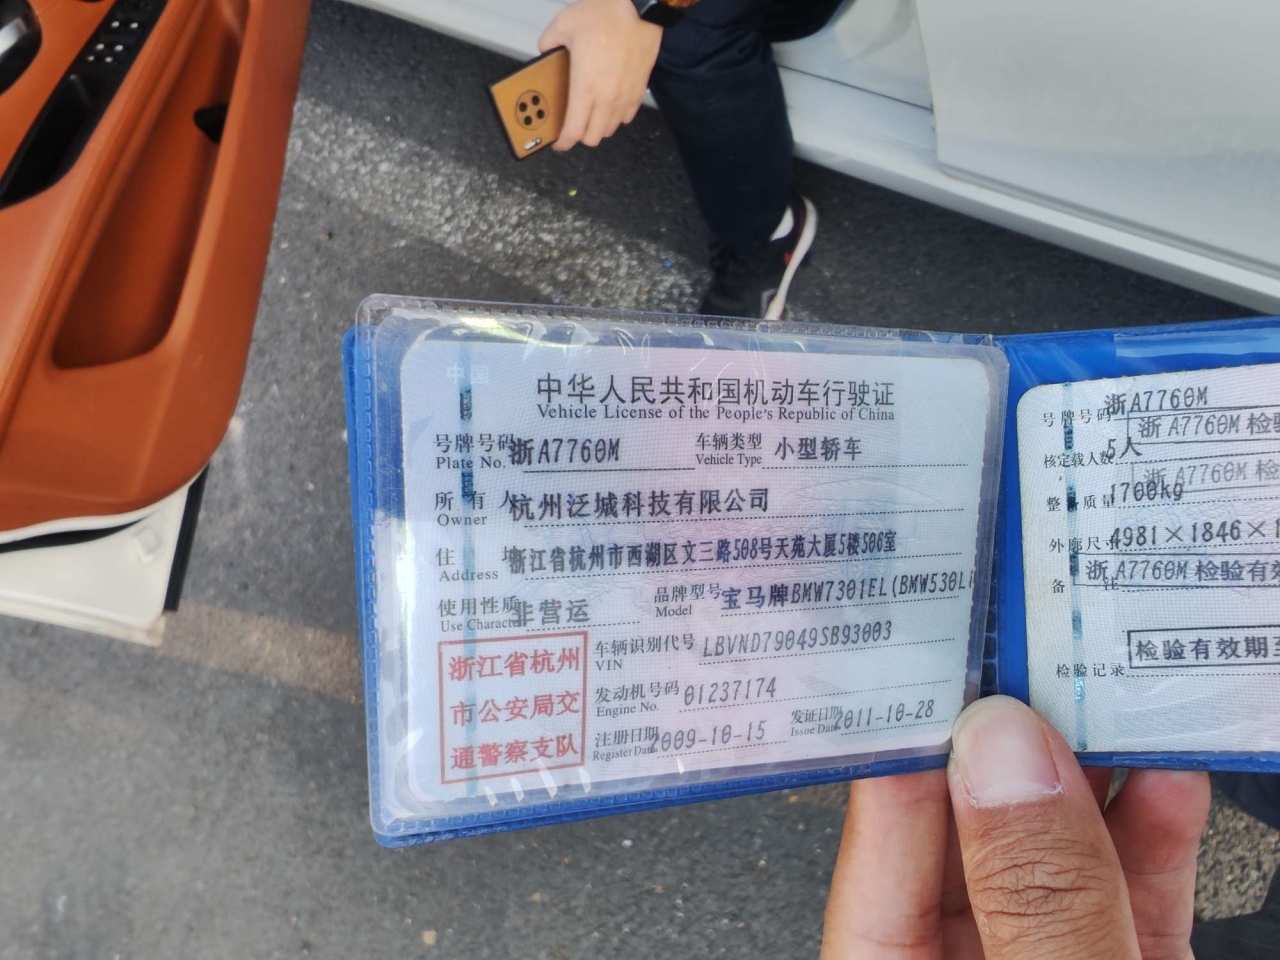 中国
中华人民共和国机动车行驶证
Vehicle License of the People's Republic of China
号牌号码 浙A7760M 车辆类型 小型轿车
Plate No. Vehicle Type
所有人 杭州泛城科技有限公司
Owner
住址 浙江省杭州市西湖区文三路508号天苑大厦5楼506室
Address
使用性质 非营运 品牌型号 宝马牌BMW7301EL(BMW530Li
Use Character Model
浙江省杭州
市公安局交
通警察支队
车辆识别代号 LBVND79049SB93003
VIN
发动机号码 01237174
Engine No.
注册日期 2009-10-15 发证日期 2011-10-28
Register Date Issue Date
号牌号码 浙A7760M
浙A7760M检验
核定载人数 5人
浙A7760M检
整备质量 1700kg
外廓尺寸 4981×1846×1
浙A7760M检验有效
备注
检验有效期至
检验记录